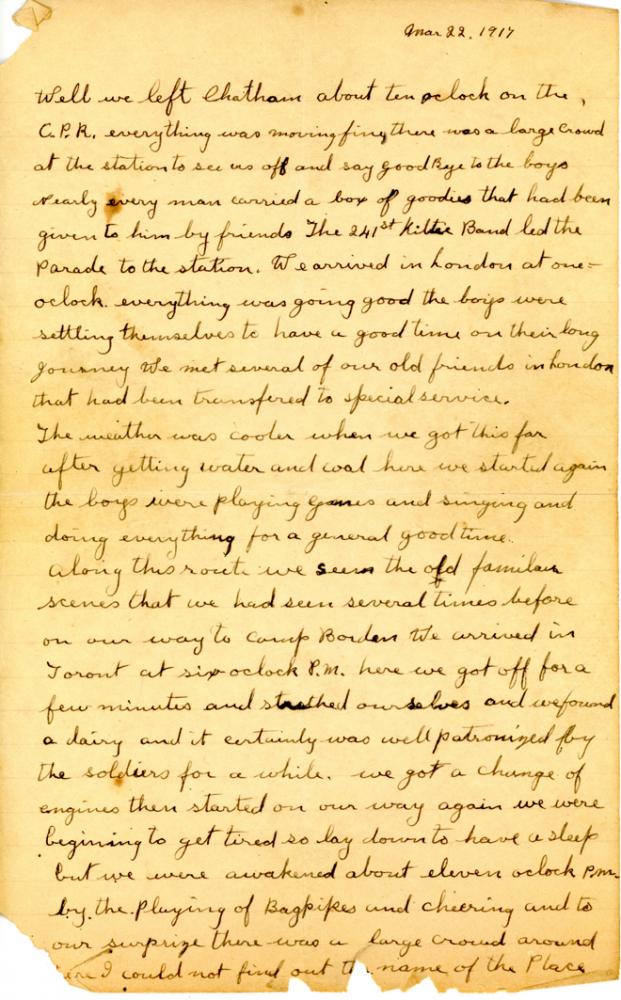 Mar 22, 1917
Well we left Chatham about ten oclock on the,
C.P.R. everything was moving fine, there was a large crowd
at the station to see us off and say good Bye to the boys
Nearly every man carried a box of goodies that had been
given to him by friends The 241st Kiltie Band led the
Parade to the station. We arrived in London at one-
oclock. everything was going good the boys were
settling themselves to have a good time on their long
Journey We met several of our old friends in London
that had been transfered to special service.
The weather was cooler when we got this far
after getting water and coal here we started again
the boys were playing games and singing and
doing everything for a general good time.
Along this route we seen the old familiar
scenes that we had seen several times before
on our way to Camp Borden We arrived in
Toront at six oclock P.M. here we got off for a
few minutes and ourselves and we found
a dairy and it certainly was well patronized by
the soldiers for a while. we got a change of
engines then started on our way again we were
begining to get tired so lay down to have a sleep
but we were awakened about eleven oclock P.M.
by the Playing of Bagpikes and cheering and to
our surprize there was a large crowd around
I could not find out name of the Place